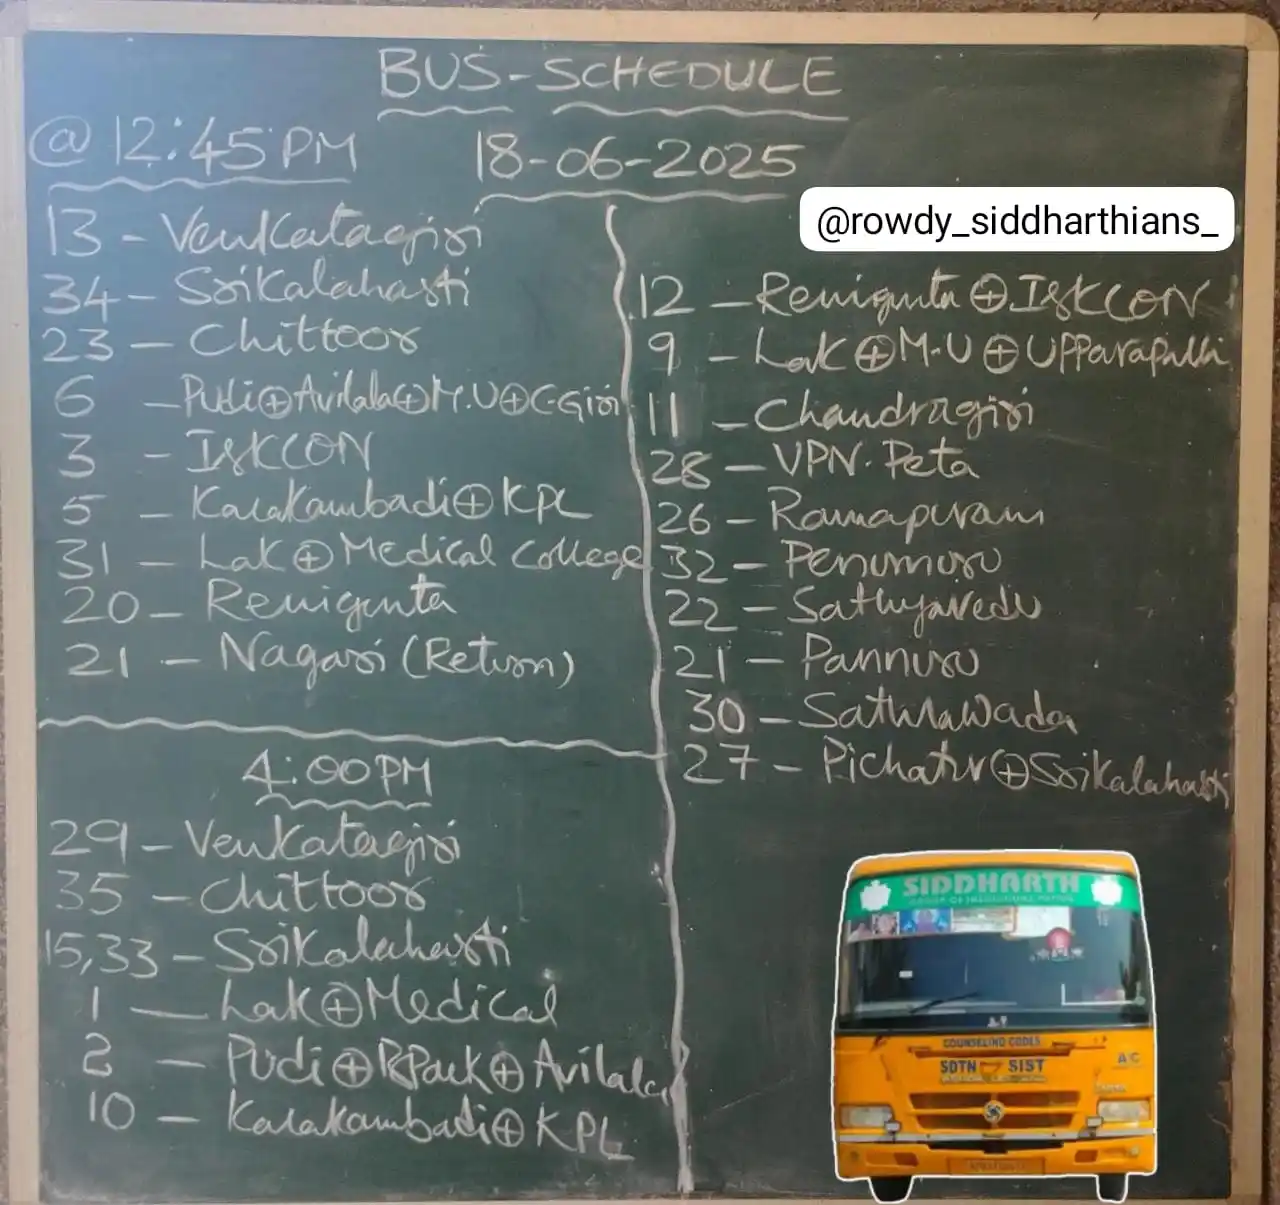 BUS-SCHEDULE
@ 12:45 PM
18-06-2025
@rowdy_siddharthians_
13 - Venkatagiri
34 - Srikalahasti
23 - Chittoor
6 - Pudi⊕Avilala⊕M.U⊕C-Giri
3 - ISKCON
5 - Karakambadi⊕KPL
31 - Lak⊕Medical College
20 - Renigunta
21 - Nagari (Return)
4:00PM
29 - Venkatagiri
35 - Chittoor
15,33 - Srikalahasti
1 - Lak⊕Medical
2 - Pudi⊕RPark⊕Avilala
10 - Karakambadi⊕KPL
12 - Renigunta⊕ISKCON
9 - Lak⊕M-U⊕Upparapalli
11 - Chandragiri
28 - VPN. Peta
26 - Ramapuram
32 - Penumuru
22 - Sathyavedu
21 - Pannuru
30 - Sathrawada
27 - Pichatur⊕Srikalahasti
SIDDHARTH
COUNSELING CODES
SDTN SIST
A/C